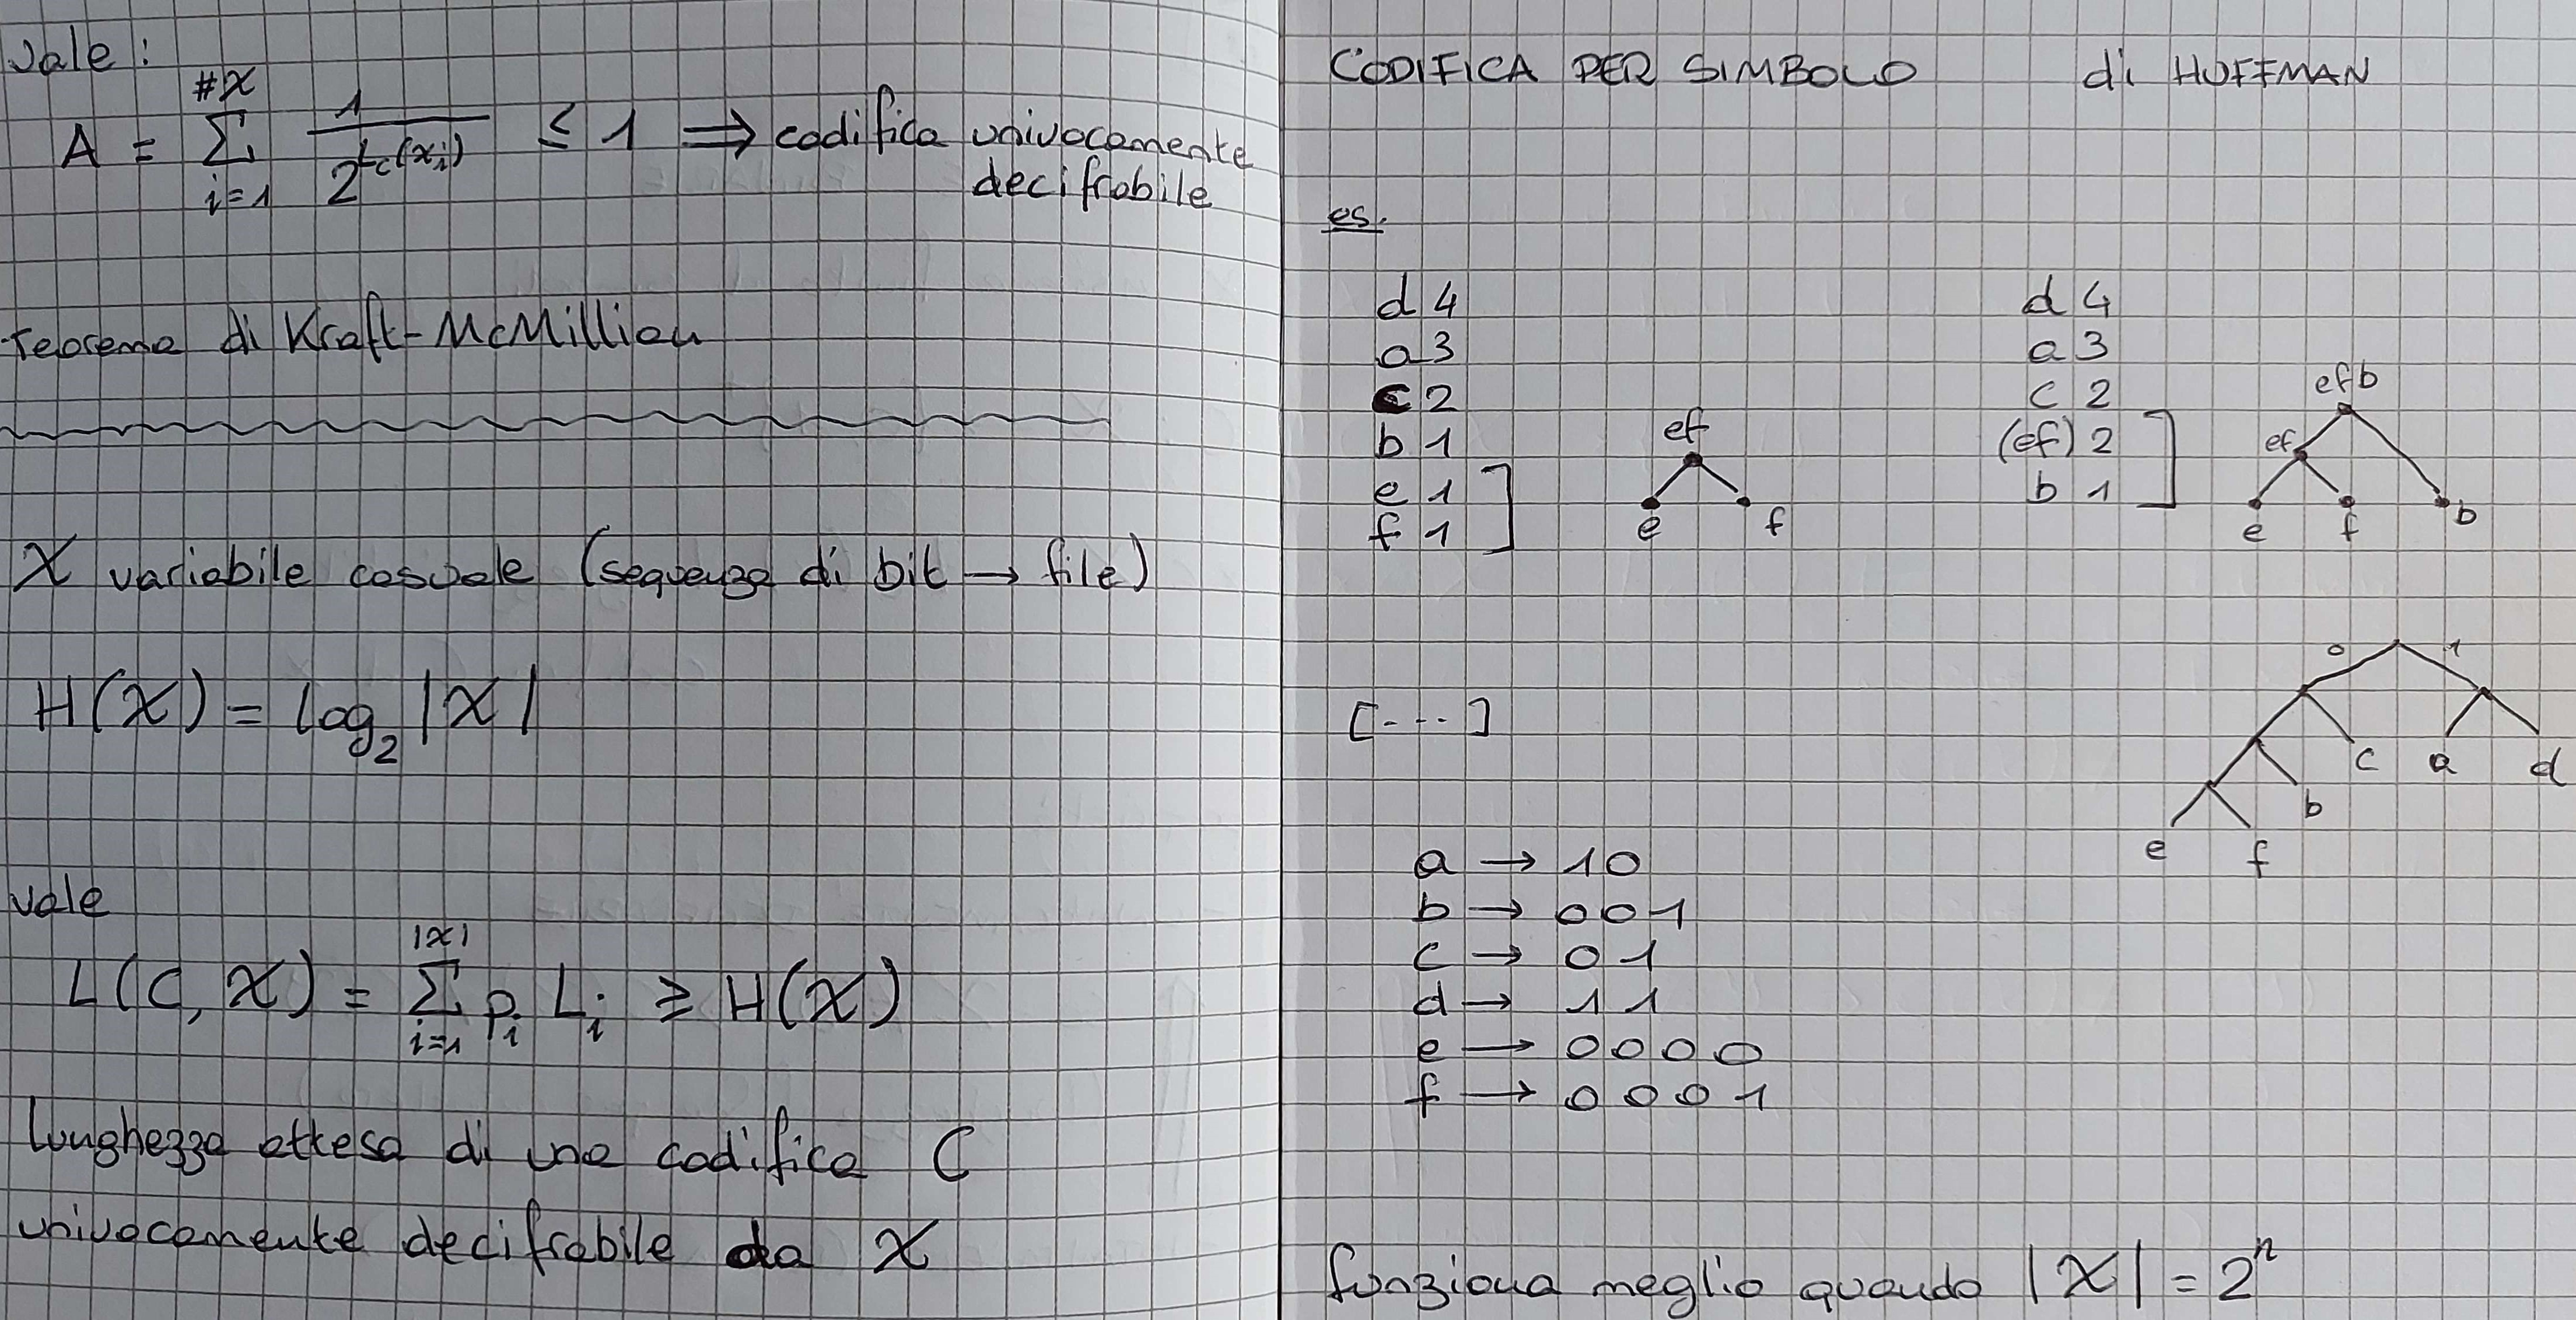 vale:
A = #X Σ i=1 1 / 2^Lc(xi) ≤ 1 ⇒ codifica univocamente
decifrabile
Teorema di Kraft-McMillian
X variabile casuale (sequenza di bit → file)
H(X) = log₂ |X|
vale
L(C, X) = |X| Σ i=1 pi Li ≥ H(X)
lunghezza attesa di una codifica C
univocamente decifrabile da X
CODIFICA PER SIMBOLO di HUFFMAN
es.
d 4
a 3
c 2
b 1
e 1
f 1
ef
e f
d 4
a 3
c 2
(ef) 2
b 1
efb
ef
e f b
0 1
c a d
b
e f
[---]
a → 10
b → 001
c → 01
d → 11
e → 0000
f → 0001
funziona meglio quando |X| = 2ⁿ